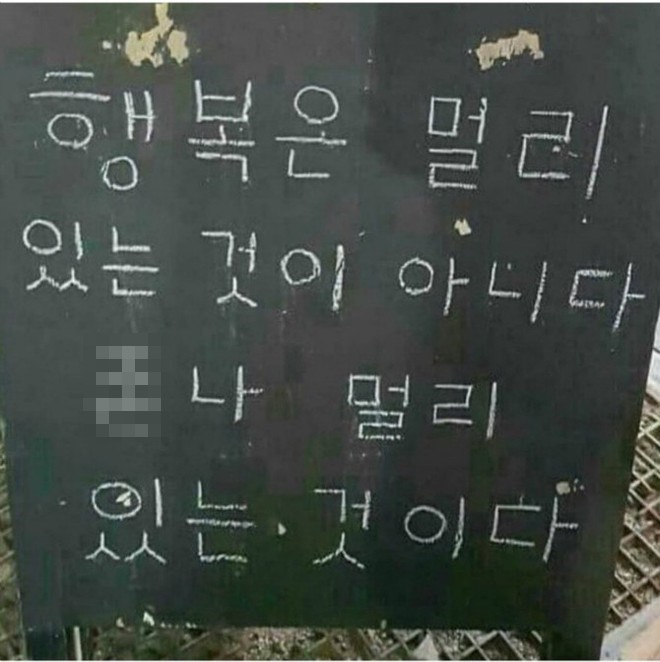 행복은 멀리
있는 것이 아니다
나 멀리
있는 것이다